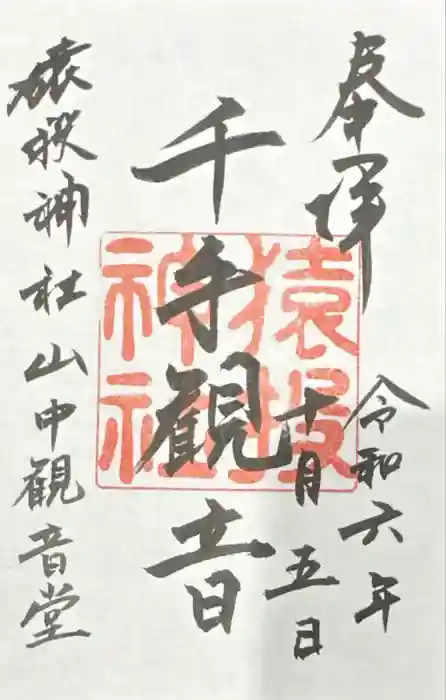 奉拝
令和六年
十月五日
千手観音
猿投神社山中観音堂
猿投
神社